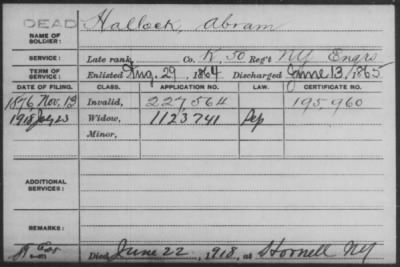 DEAD
Hallock, Abram
NAME OF
SOLDIER:
SERVICE:
Late rank, Co. K, 50 Reg't NY Engrs
TERM OF
SERVICE:
Enlisted Aug. 29, 1864 Discharged June 13, 1865
DATE OF FILING. CLASS. APPLICATION NO. LAW. CERTIFICATE NO.
1876 Nov, 13 Invalid, 227,564 195960
1918 July 23 Widow, 1123741
Minor,
ADDITIONAL
SERVICES:
REMARKS:
Died June 22, 1918, at Hornell NY